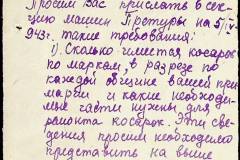 Просим Вас прислать в сек-
цию машин Претуры на 5/IV
943 г. такие требования:
1). Сколько имеется косарок
по маркам, в разрезе по
каждой общине вашей при-
марии и какие необходи-
мые части нужны для
ремонта косарок. Эти све-
дения просим необходимо
представить на выше